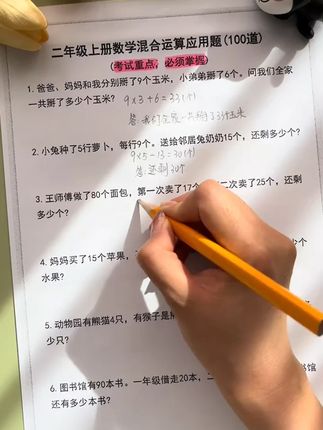 二年级上册数学混合运算应用题(100道)
(考试重点，必须掌握)
1. 爸爸、妈妈和我分别掰了9个玉米，小弟弟掰了6个。问我们全家
一共掰了多少个玉米? 9×3+6=33(个)
答:我们全家一共掰了33个玉米
2. 小兔种了5行萝卜，每行9个。送给邻居兔奶奶15个，还剩多少个?
9×5-15=30(个)
答:还剩30个
3. 王师傅做了80个面包，第一次卖了17个 二次卖了25个，还剩
多少个?
4. 妈妈买了15个苹果，
水果?
5. 动物园有熊猫4只，有猴子是
少只?
6. 图书馆有90本书。一年级借走20本，二 图书馆
还有多少本书?